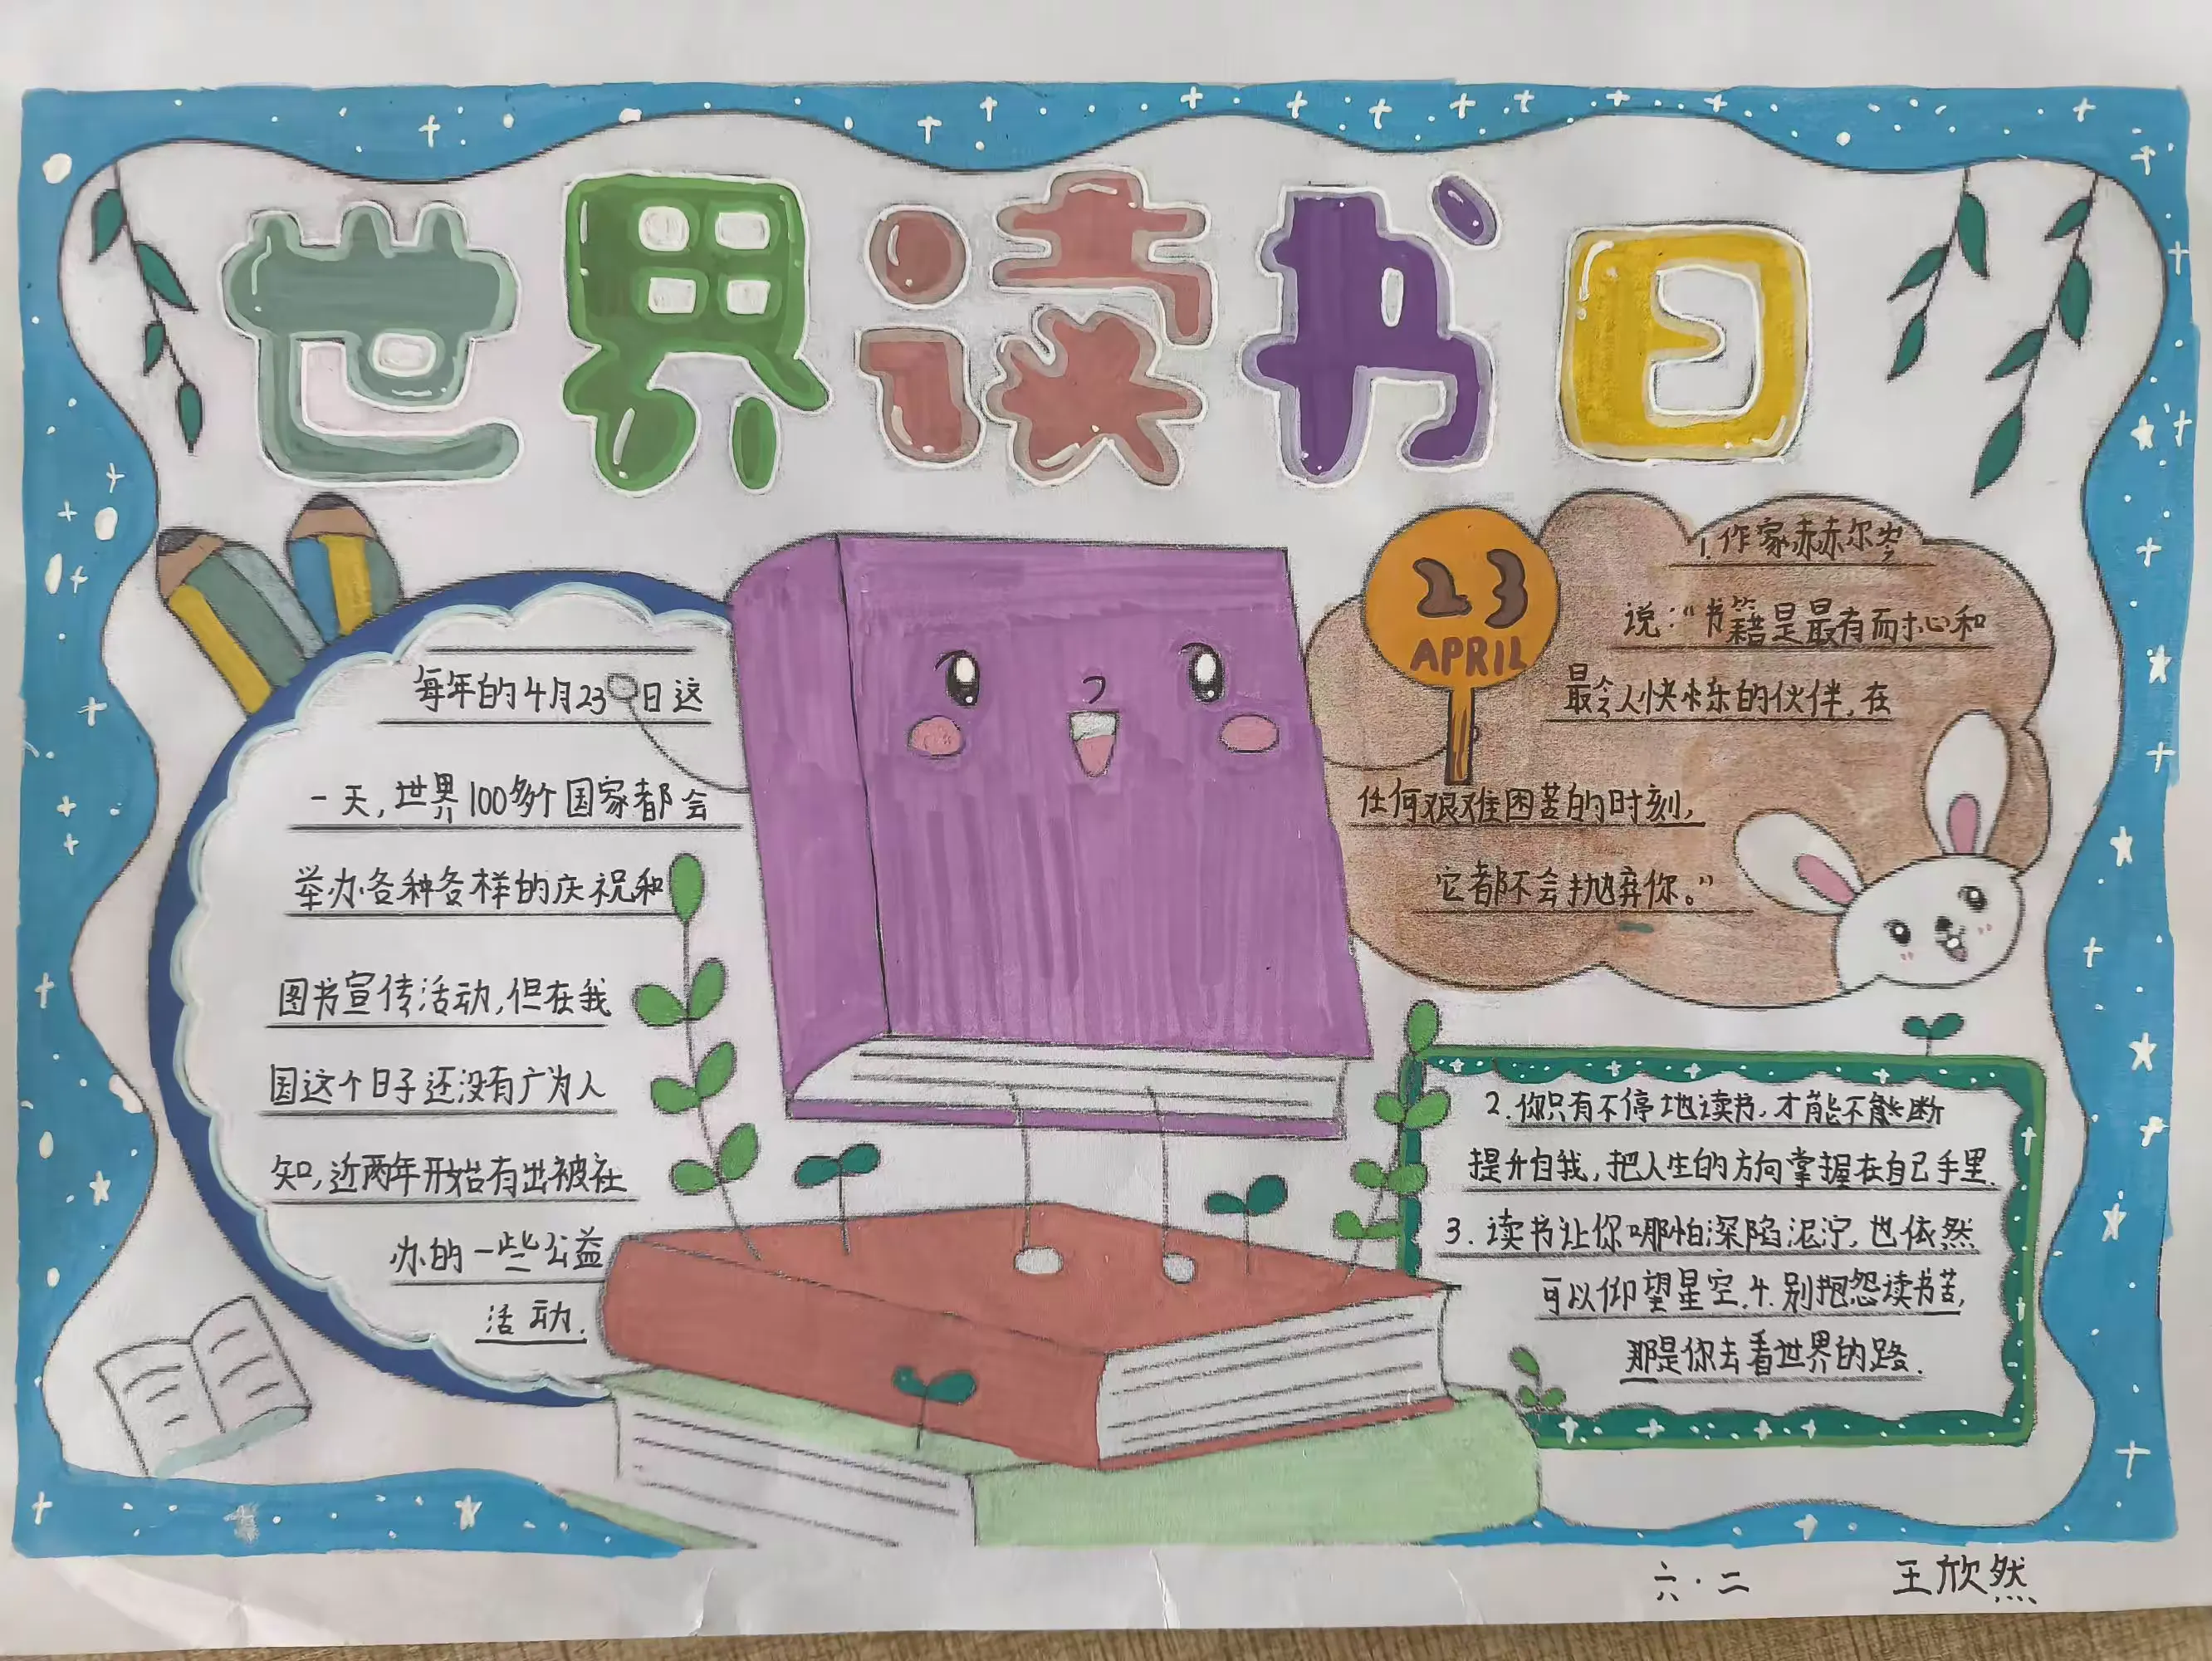 世界读书日
每年的4月23日这
一天,世界100多个国家都会
举办各种各样的庆祝和
图书宣传活动,但在我
国这个日子还没有广为人
知,近两年开始有出被社
办的一些公益
活动.
23
APRIL
1.作家赫赫尔岑
说:“书籍是最有耐心和
最令人快乐的伙伴,在
任何艰难困苦的时刻,
它都不会抛弃你。”
2.你只有不停地读书,才能不能断
提升自我,把人生的方向掌握在自己手里.
3.读书让你哪怕深陷泥泞,也依然
可以仰望星空.4.别抱怨读书苦,
那是你去看世界的路.
六·二 王欣然